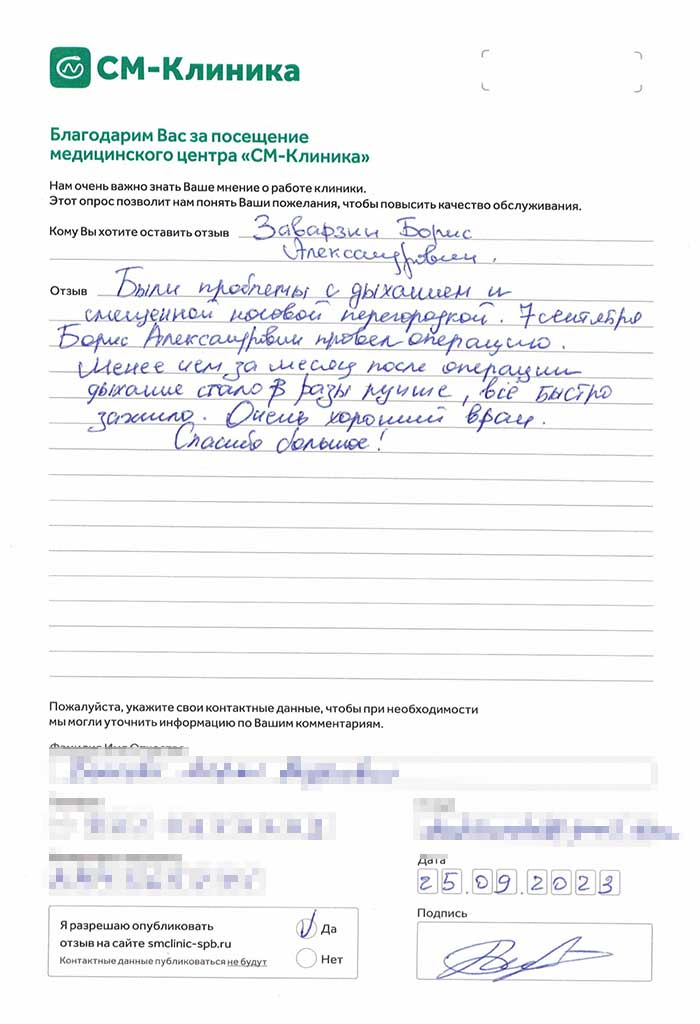 СМ-Клиника
Благодарим Вас за посещение
медицинского центра «СМ-Клиника»
Нам очень важно знать Ваше мнение о работе клиники.
Этот опрос позволит нам понять Ваши пожелания, чтобы повысить качество обслуживания.
Кому Вы хотите оставить отзыв Заварзин Борис
Александрович.
Отзыв Были проблемы с дыханием и
смещенной носовой перегородкой. 7 сентября
Борис Александрович провел операцию.
Менее чем за месяц после операции
дыхание стало в разы лучше, всё быстро
зажило. Очень хороший врач.
Спасибо большое!
Пожалуйста, укажите свои контактные данные, чтобы при необходимости
мы могли уточнить информацию по Вашим комментариям.
Дата
25.09.2023
Я разрешаю опубликовать
отзыв на сайте smclinic-spb.ru
Контактные данные публиковаться не будут
Да
Нет
Подпись